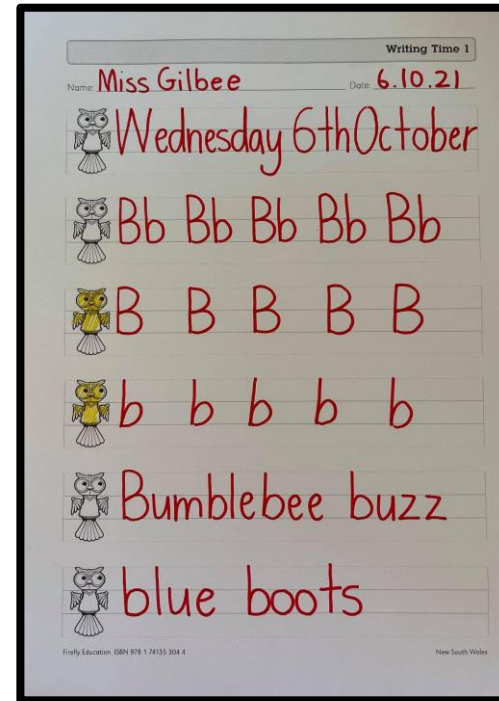 Writing Time 1
Name: Miss Gilbee Date: 6.10.21
Wednesday 6th October
Bb Bb Bb Bb Bb
B B B B B
b b b b b
Bumblebee buzz
blue boots
Firefly Education ISBN 978 1 74135 304 4 New South Wales